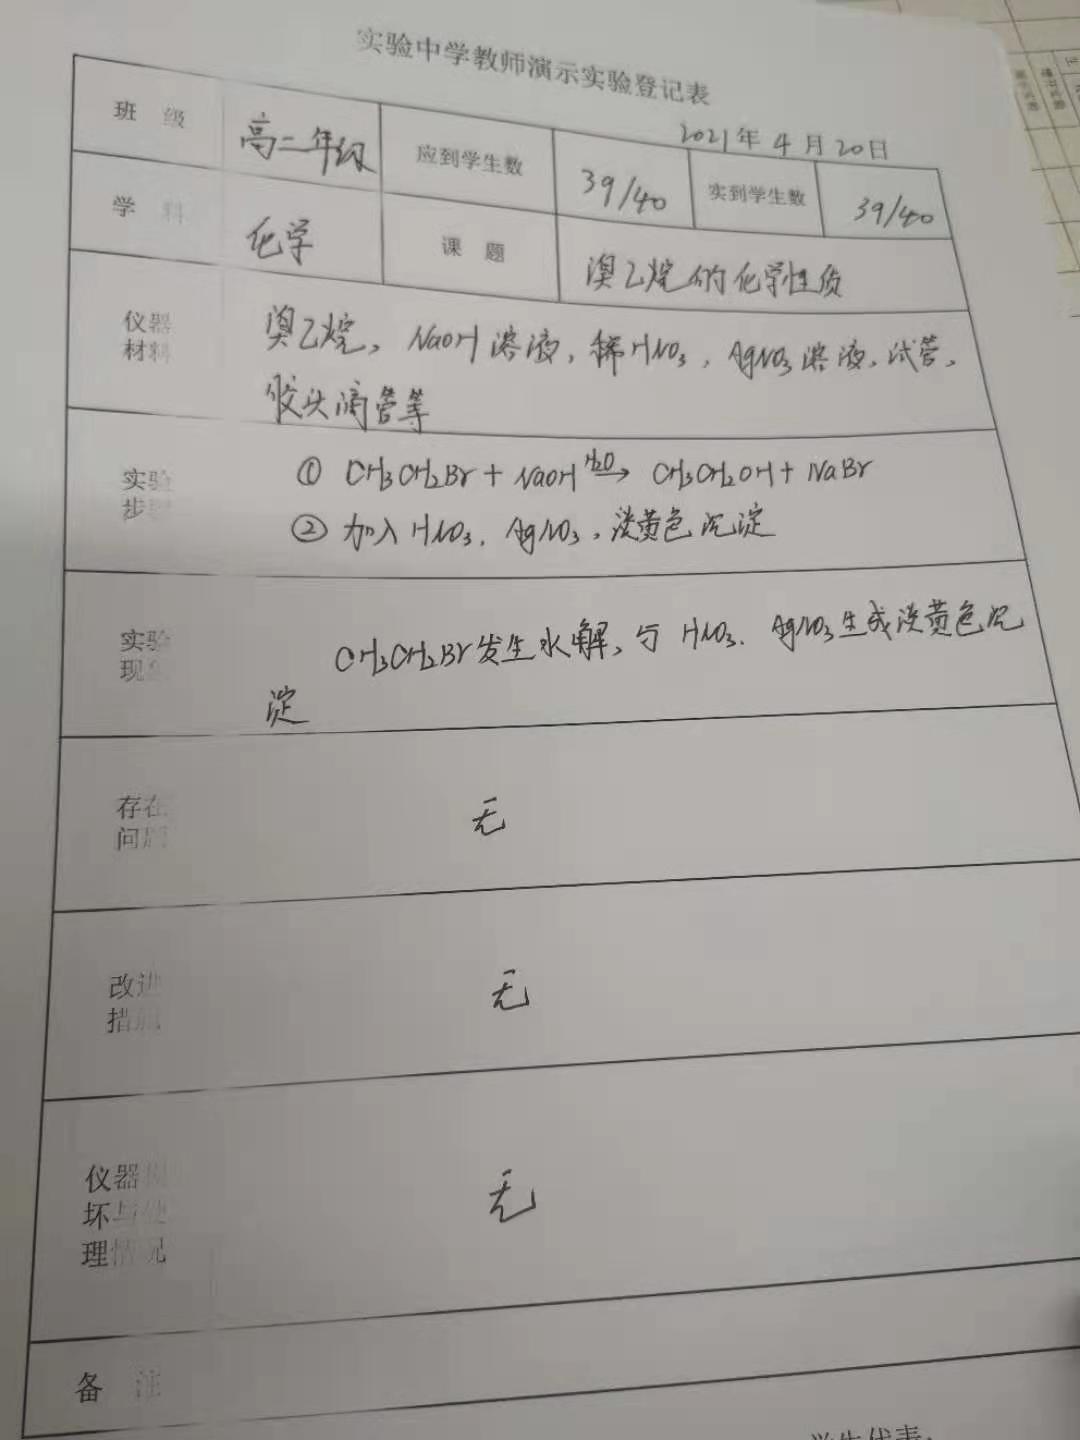 实验中学教师演示实验登记表
2021年4月20日
班 级 高二年级 应到学生数 39/40 实到学生数 39/40
学 料 化学 课 题 溴乙烷的化学性质
仪器 溴乙烷、NaOH溶液、稀HNO3、AgNO3溶液、试管、
材料 胶头滴管等
实验 ① CH3CH2Br + NaOH H2O→ CH3CH2OH + NaBr
步骤 ② 加入HNO3、AgNO3、淡黄色沉淀
实验 CH3CH2Br发生水解、与HNO3、AgNO3生成淡黄色沉
现象 淀
存在
问题 无
改进
措施 无
仪器损
坏与处 无
理情况
备 注
学生代表: